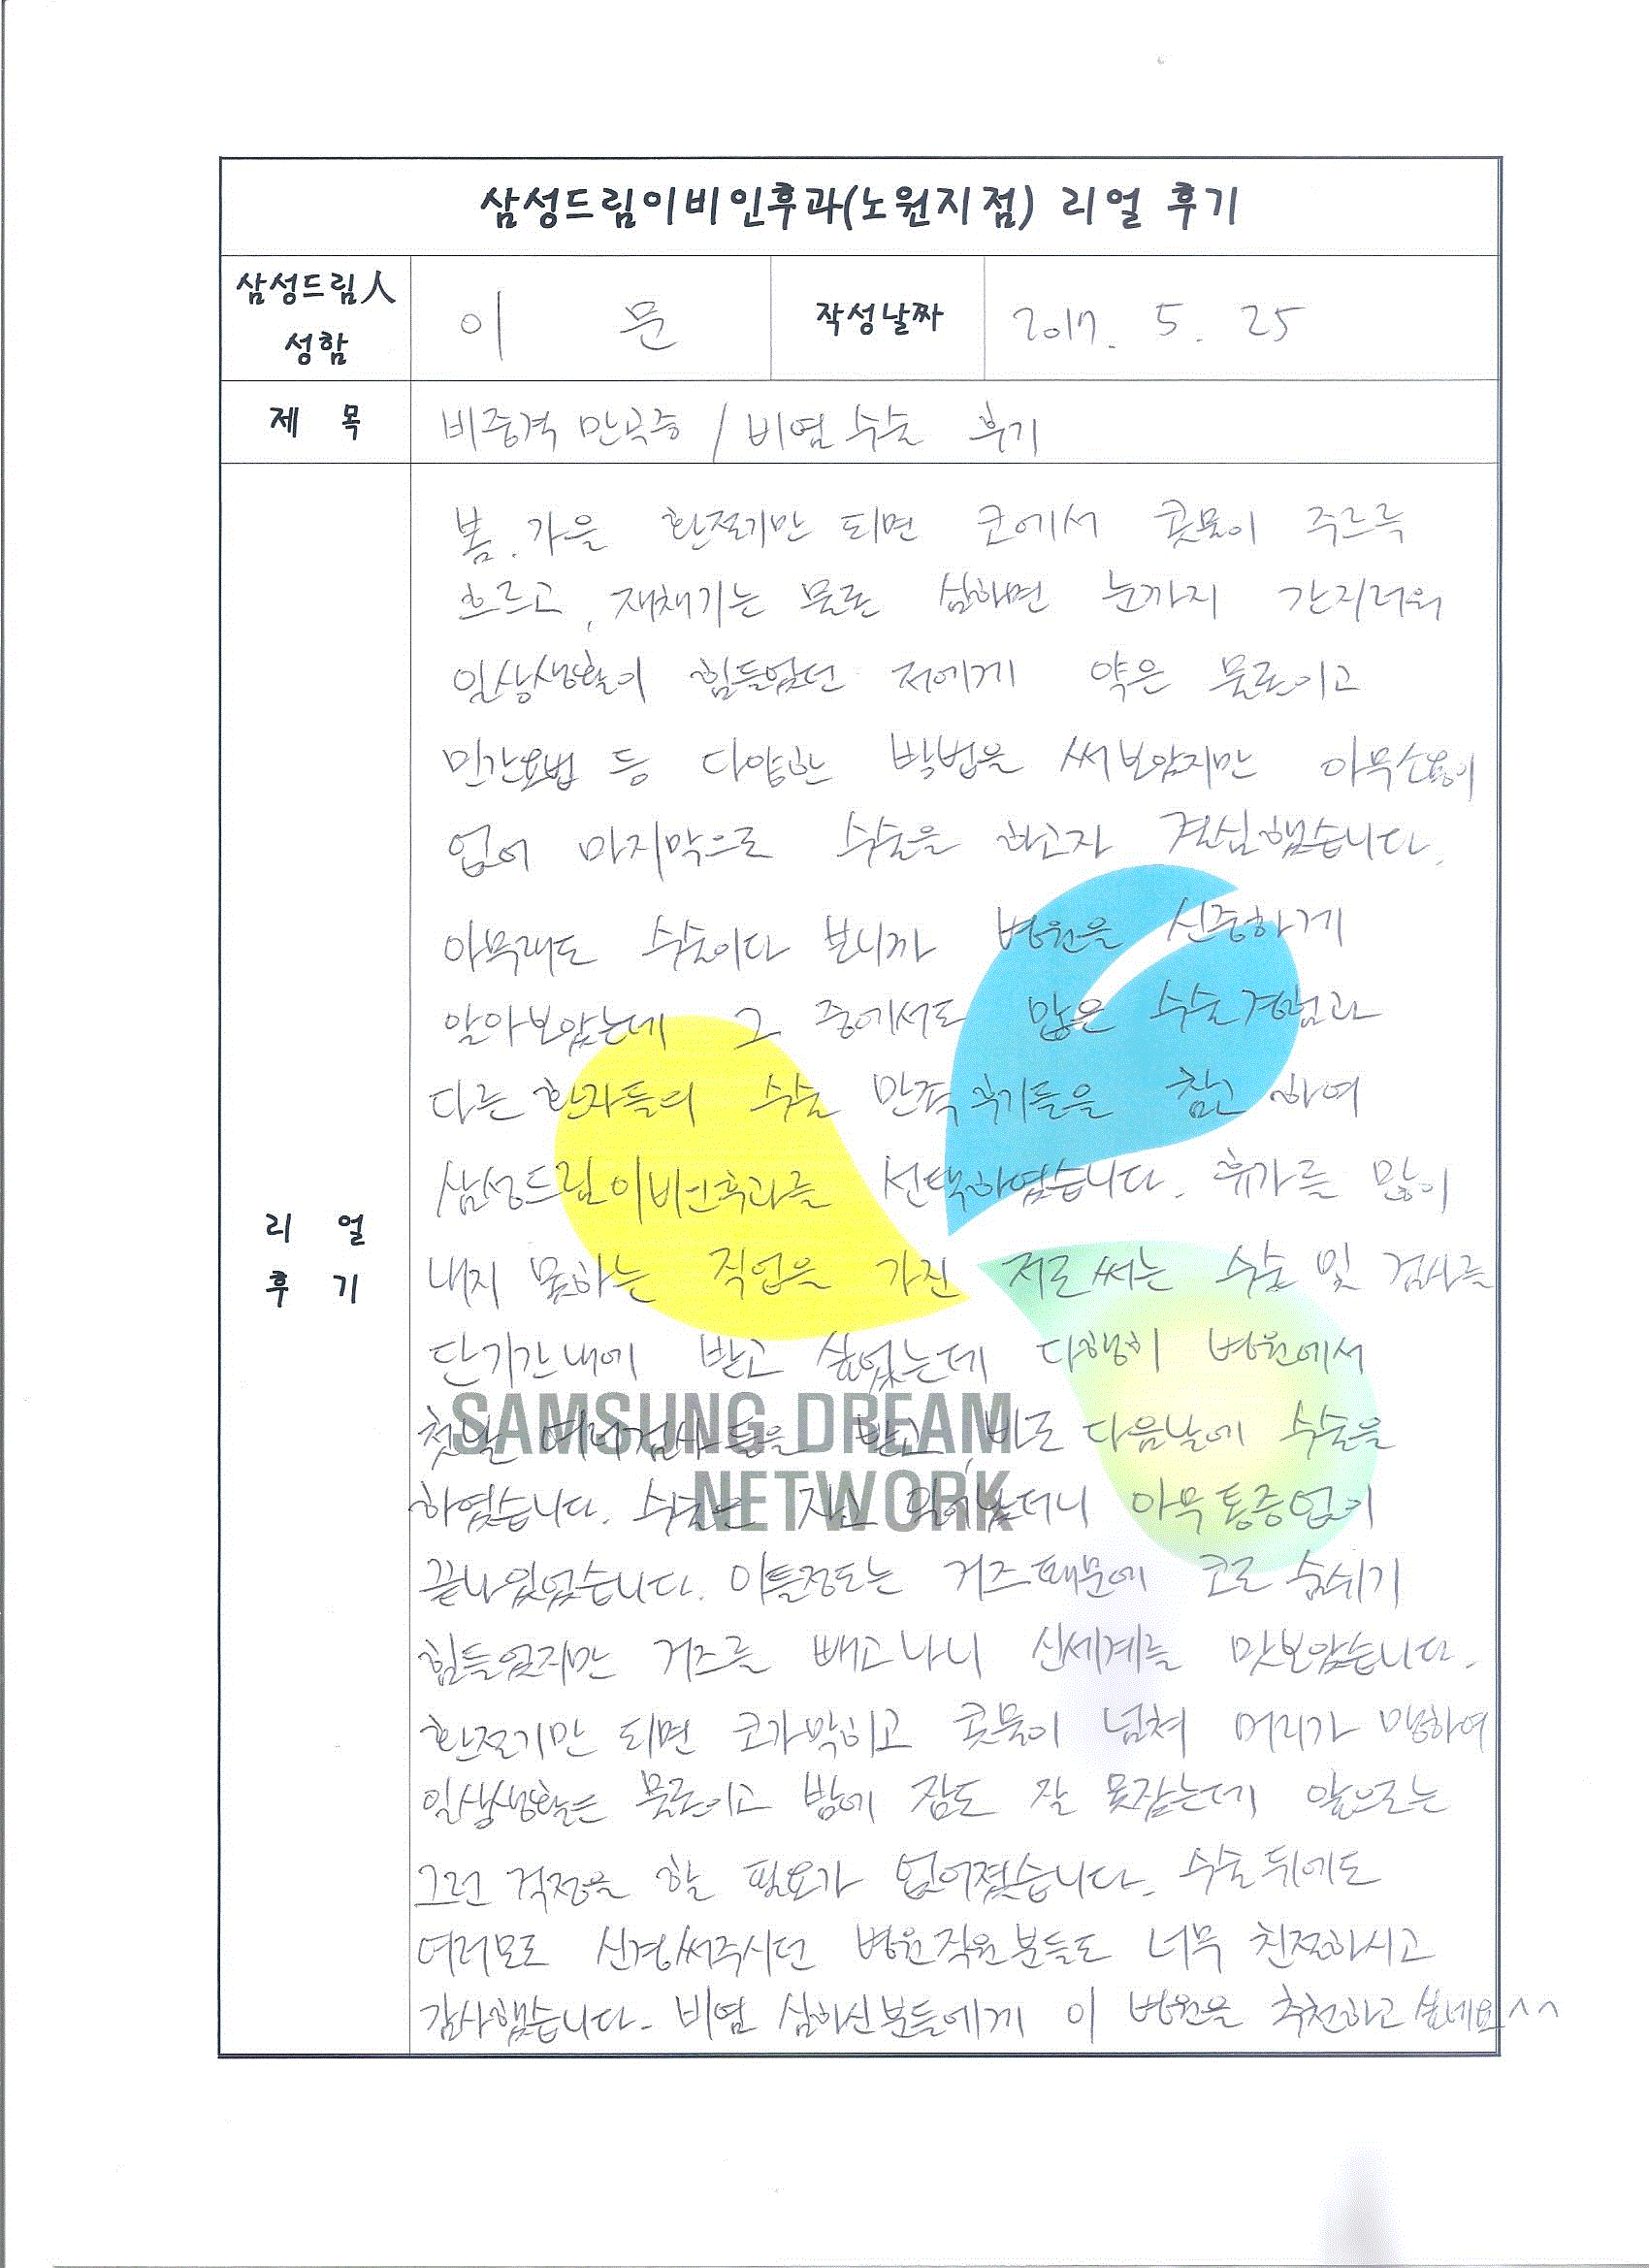 삼성드림이비인후과(노원지점) 리얼 후기
삼성드림人
성함
이 문
작성날짜
2017. 5. 25
제 목
비중격 만곡증 / 비염 수술 후기
리 얼
후 기
봄. 가을 환절기만 되면 코에서 콧물이 주르륵
흐르고, 재채기는 물론 심하면 눈까지 간지러워
일상생활이 힘들었던 저에게 약은 물론이고
민간요법 등 다양한 방법을 써보았지만 아무소용이
없어 마지막으로 수술을 하고자 결심했습니다.
아무래도 수술이다 보니까 병원을 신중하게
알아보았는데 그 중에서도 많은 수술경험과
다른 환자들의 수술 만족후기들을 참고 하여
삼성드림이비인후과를 선택하였습니다. 휴가를 많이
내지 못하는 직업을 가진 저로써는 수술 및 검사를
단기간내에 받고 싶었는데 다행히 병원에서
첫날 여러검사들을 받고, 바로 다음날에 수술을
하였습니다. 수술은 자고 일어났더니 아무통증없이
끝나있었습니다. 이틀정도는 거즈때문에 코로 숨쉬기
힘들었지만 거즈를 빼고나니 신세계를 맛보았습니다.
환절기만 되면 코가막히고 콧물이 넘쳐 머리가 멍하여
일상생활은 물론이고 밤에 잠도 잘 못잤는데 앞으로는
그런 걱정을 할 필요가 없어졌습니다. 수술뒤에도
여러모로 신경써주시던 병원직원분들도 너무 친절하시고
감사했습니다. 비염 심하신분들에게 이 병원을 추천하고싶네요^^
SAMSUNG DREAM
NETWORK